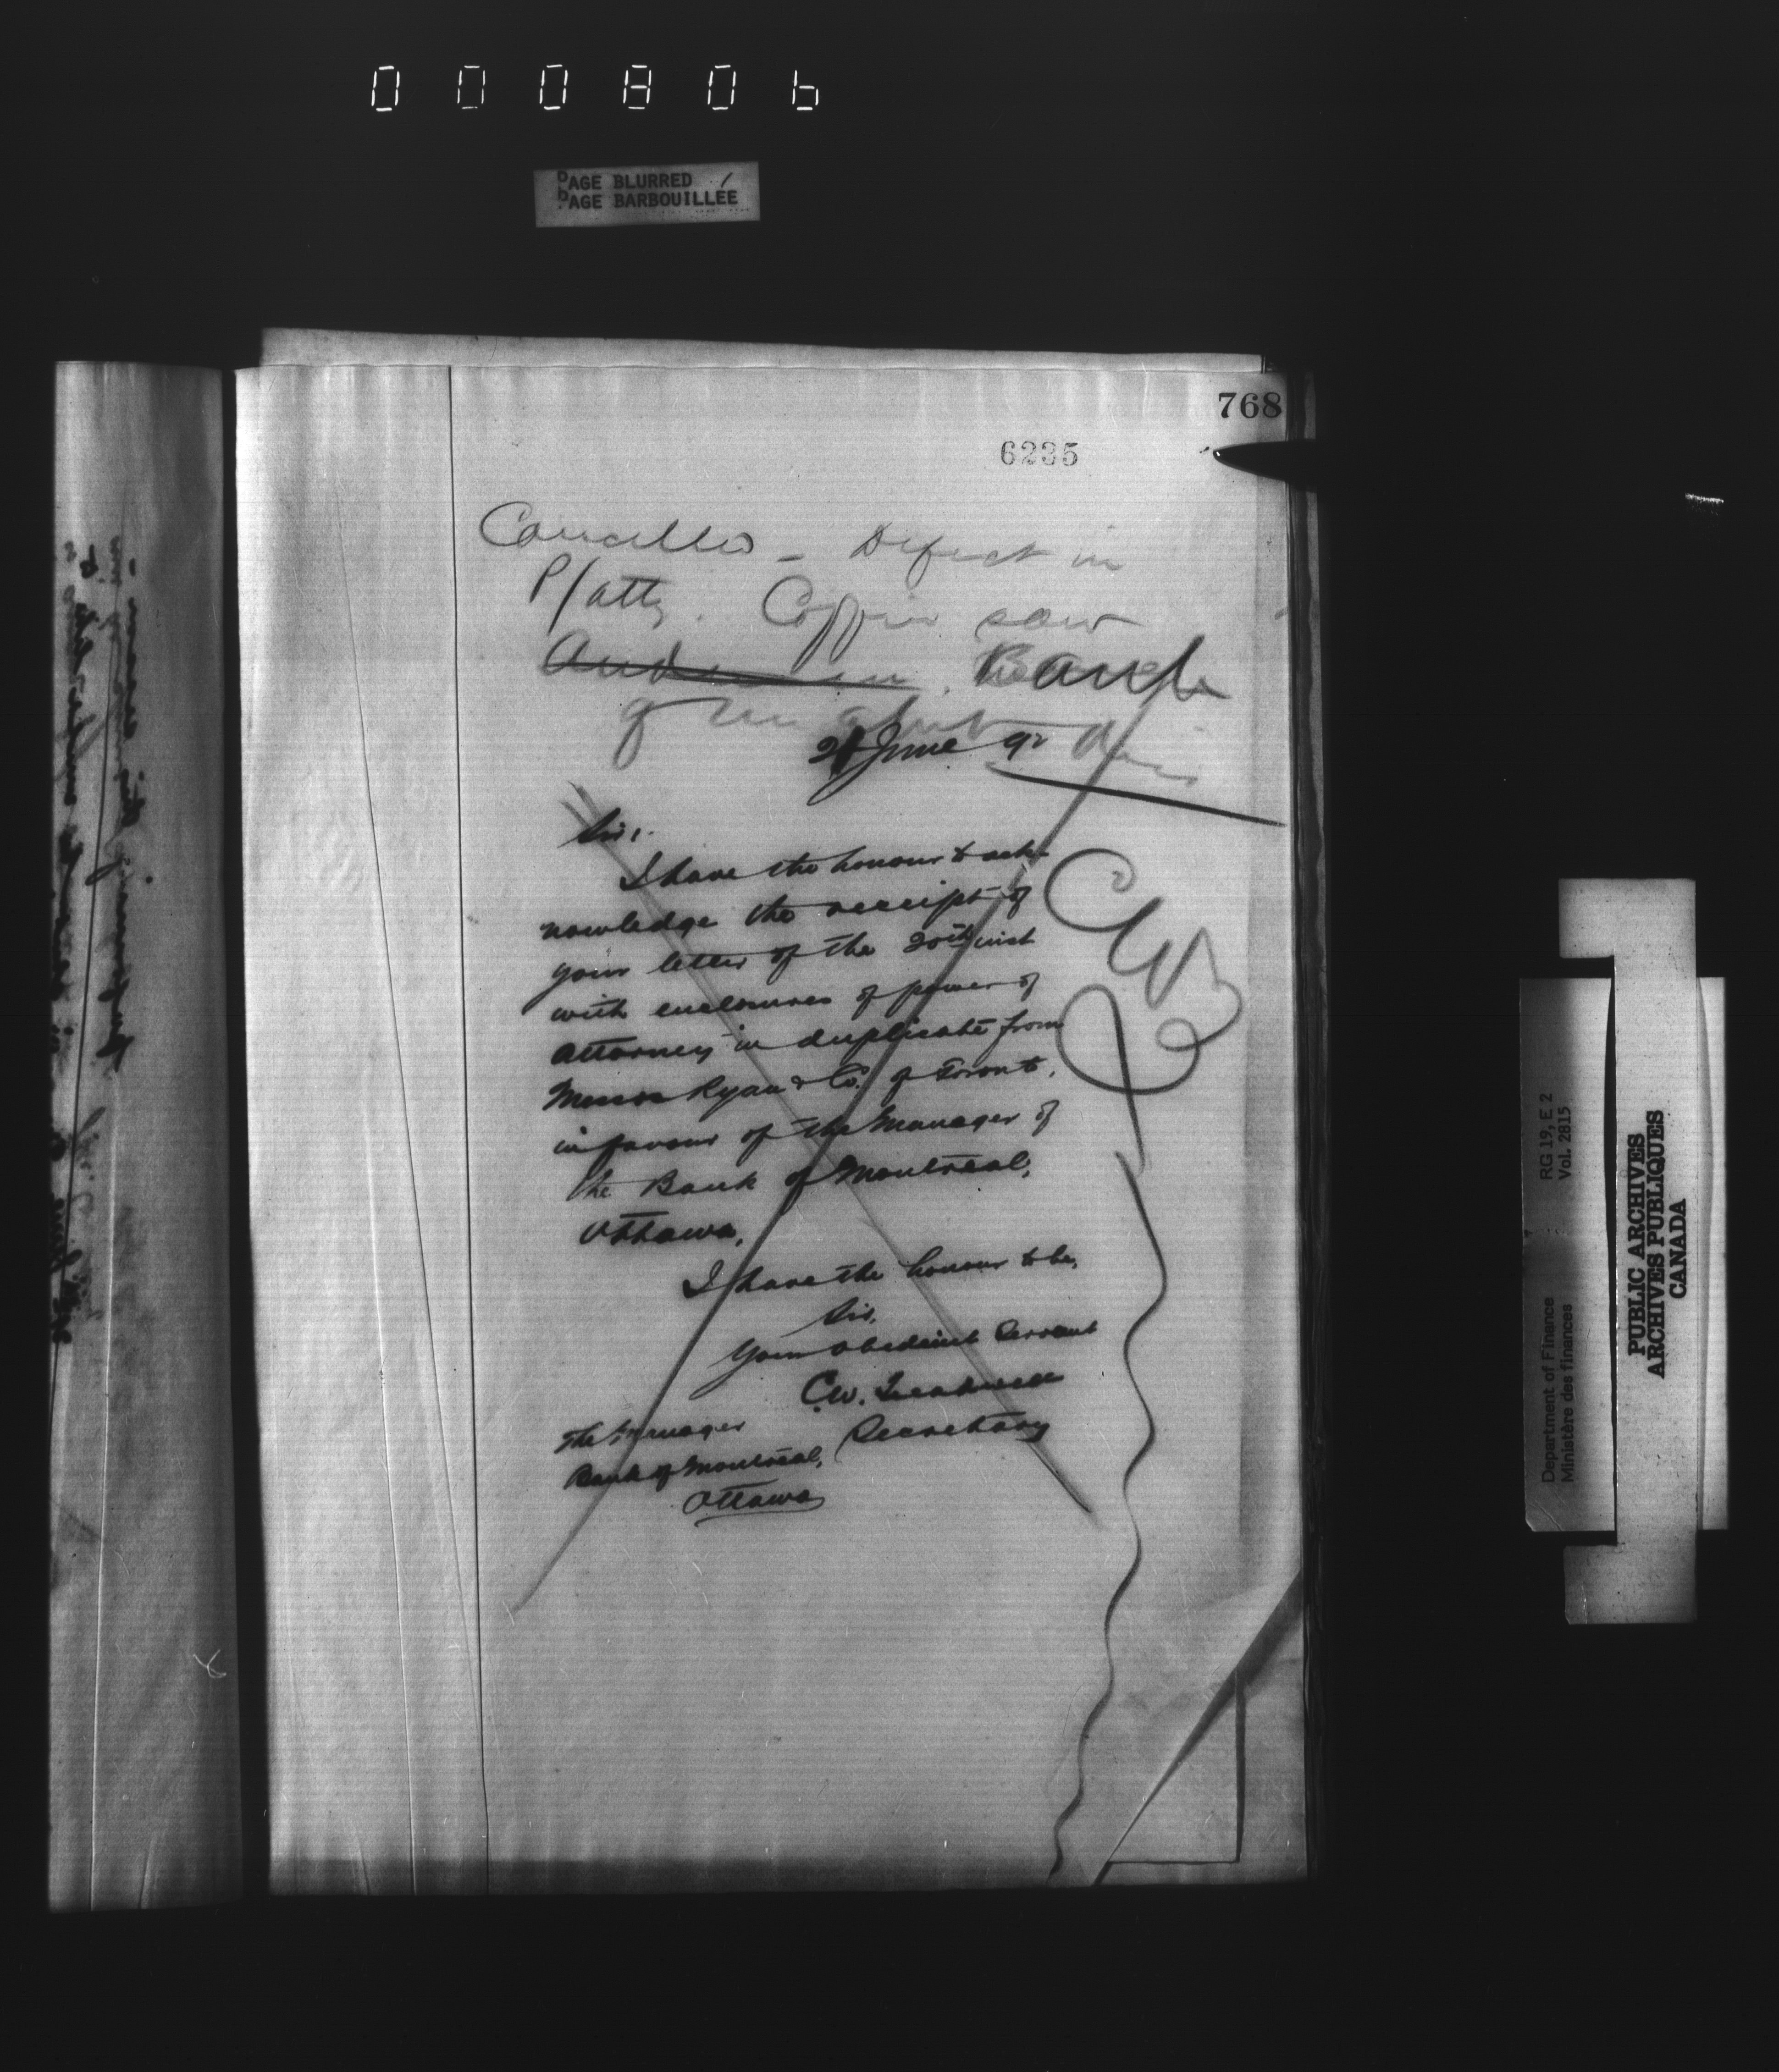 000806
PAGE BLURRED
PAGE BARBOUILLÉE
768
6235
Cancelled - Defect in
P/atty. Coffin saw
Anderson. Bank
of Mr about this
21 June 92
Sir,
I have the honour to ack-
nowledge the receipt of
your letter of the 20th inst
with enclosures of power of
attorney in duplicate from
Messrs Ryan & Co. of Toronto,
in favour of the Manager of
the Bank of Montreal,
Ottawa.
I have the honour to be,
Sir,
Your obedient Servant
C.W. Treadwell
Secretary
The Manager
Bank of Montreal,
Ottawa
CWT
RG 19, E 2
Vol. 2815
Department of Finance
Ministère des finances
PUBLIC ARCHIVES
ARCHIVES PUBLIQUES
CANADA